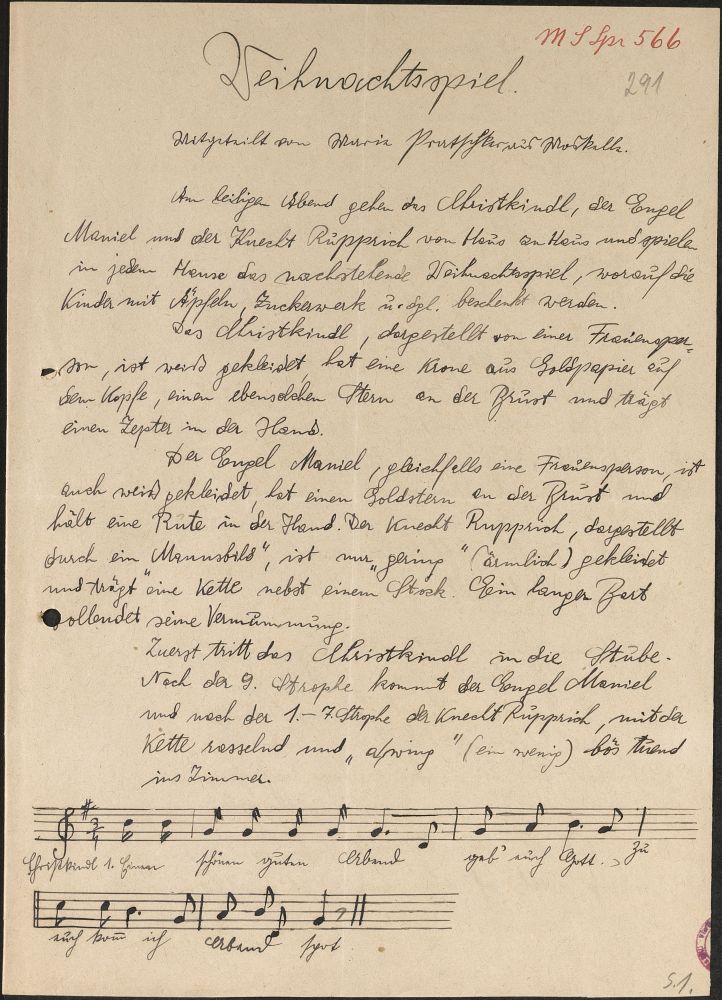 M S Spr 566
291
Weihnachtsspiel.
Mitgeteilt von Maria Pratschker aus Moskelle.
Am heiligen Abend gehen das Christkindl, der Engel
Maniel und der Knecht Rupprich von Haus zu Haus und spielen
in jedem Hause das nachstehende Weihnachtsspiel, worauf die
Kinder mit Äpfeln, Zuckerwerk u. dgl. beschenkt werden.
Das Christkindl, dargestellt von einer Frauensper-
son, ist weiß gekleidet, hat eine Krone aus Goldpapier auf
dem Kopfe, einen ebensolchen Stern an der Brust und trägt
einen Zepter in der Hand.
Der Engel Maniel, gleichfalls eine Frauensperson, ist
auch weiß gekleidet, hat einen Goldstern an der Brust und
hält eine Rute in der Hand. Der Knecht Rupprich, dargestellt
durch ein „Mannsbild", ist nur „gering" (ärmlich) gekleidet
und trägt eine Kette nebst einem Stock. Ein langer Bart
vollendet seine Vermummung.
Zuerst tritt das Christkindl in die Stube.
Nach der 9. Strophe kommt der Engel Maniel
und nach der 1.–7. Strophe der Knecht Rupprich, mit der
Kette rasselnd und „a wing" (ein wenig) bös tuend
ins Zimmer.
Christkindl 1. Einen schönen guten Abend geb' euch Gott. Zu
euch kom̄ ich Abend spot.
S. 1.